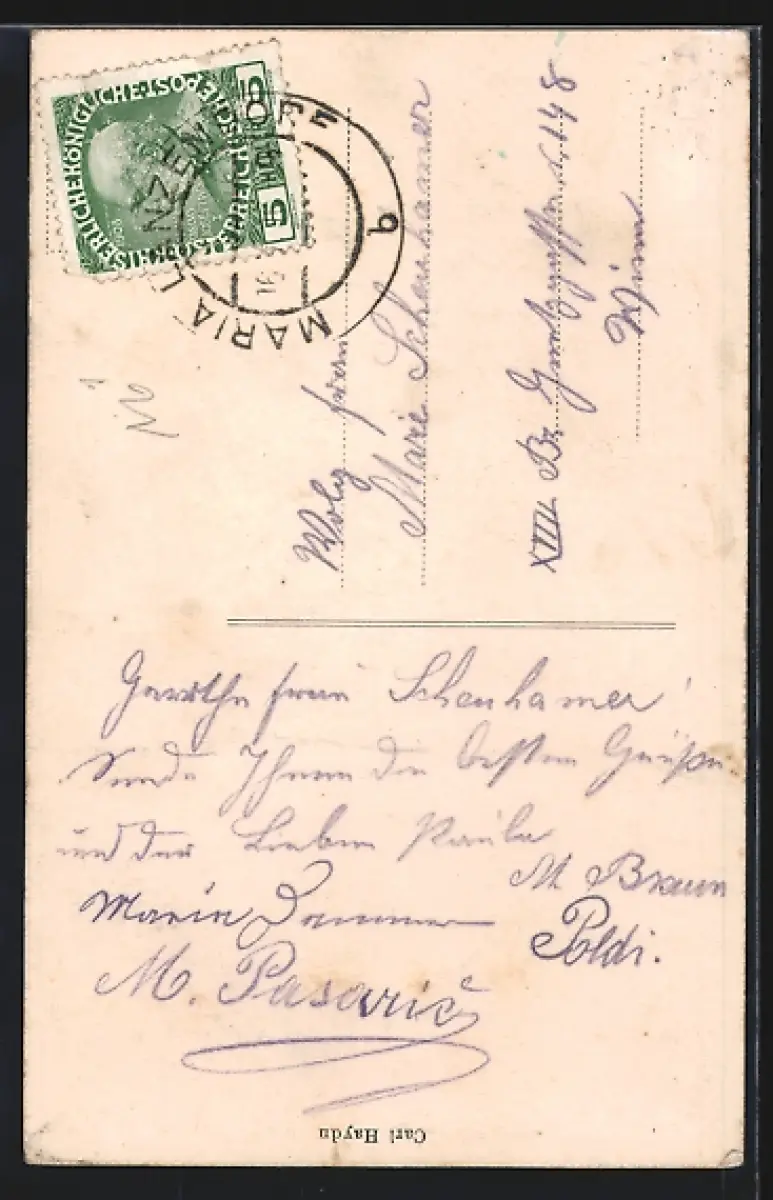 KAISERLICHE KÖNIGLICHE ÖSTERREICHISCHE POST
5 HELLER 5
MARIA LANZENDORF
b
Wolg frau
Marie Scheuhamer
XIII Bz 148
Wien
Geerthe frau Scheuhamer!
Sende Ihnen die besten Grüße
und der lieben Paula
M Braun
Marie
Poldi.
M. Pasarič
Carl Haydn